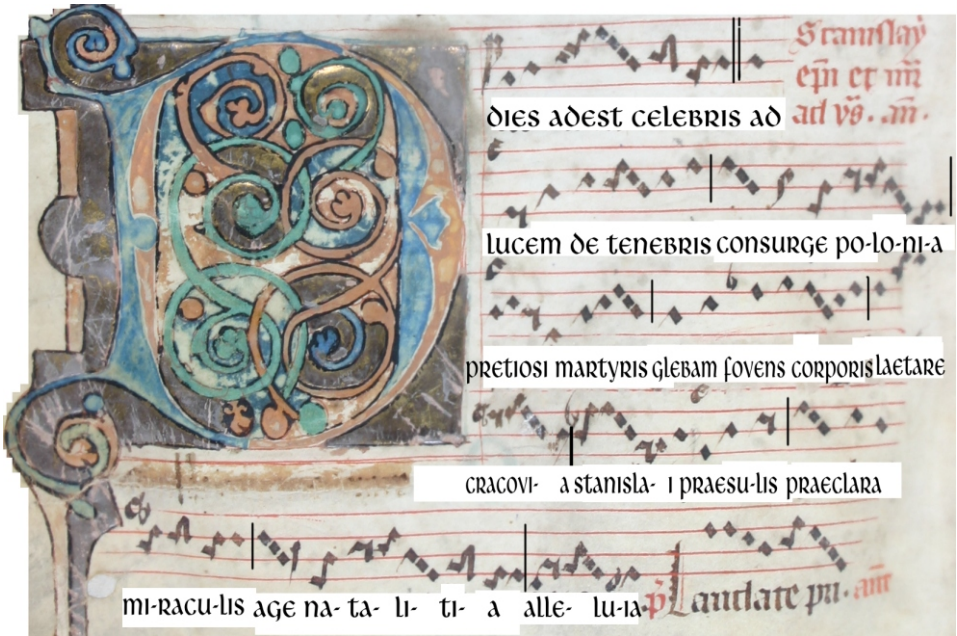 Stanislay
dies adest celebris ad
ad vs̄. an̄.
lucem de tenebris consurge po-lo-ni-a
pretiosi martyris glebam fovens corporis laetare
cracovi- a stanisla- i praesu-lis praeclara
mi-racu-lis age na- ta- li- ti- a alle- lu-ia.
Laudate